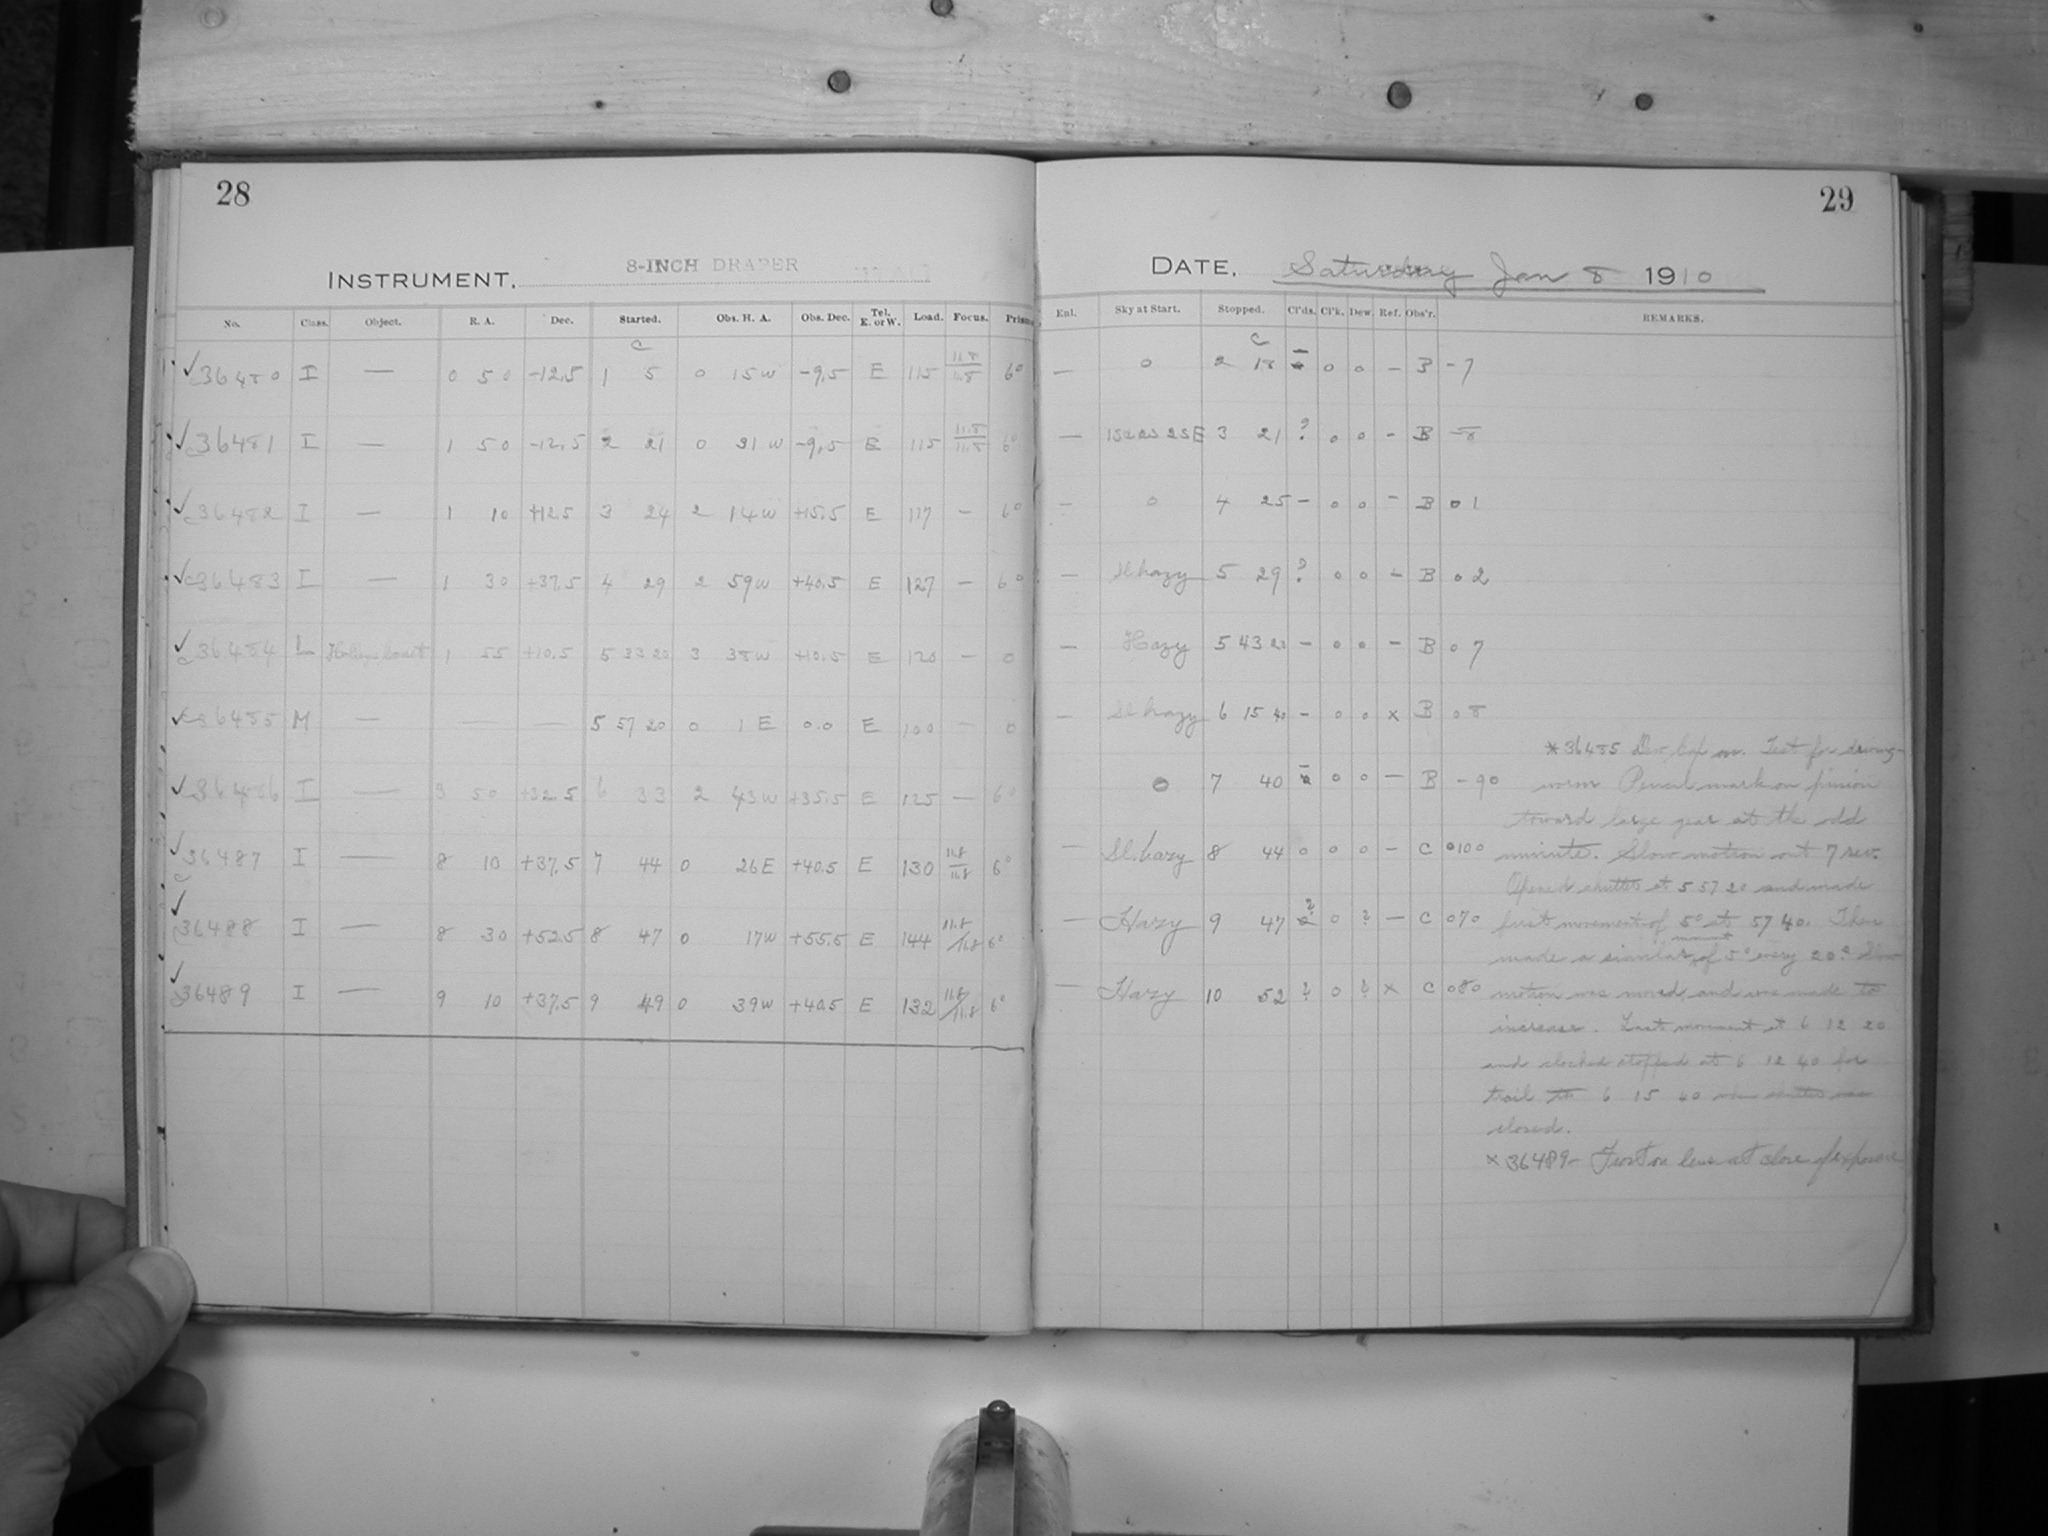 28
INSTRUMENT. 8-INCH DRAPER
No. Class. Object. R. A. Dec. Started. Obs. H. A. Obs. Dec. Tel. E. or W. Load. Focus. Prism
c
✓36480 I — 0 50 -12.5 1 5 0 15W -9.5 E 115 11.8/11.8 6°
✓36481 I — 1 50 -12.5 2 21 0 31W -9.5 E 115 11.8/11.8 6°
✓36482 I — 1 10 +12.5 3 24 2 14W +15.5 E 117 — 6°
✓36483 I — 1 30 +37.5 4 29 2 59W +40.5 E 127 — 6°
✓36484 L 1 55 +10.5 5 33 20 3 38W +10.5 E 120 — 0
✓36485 M — — — 5 57 20 0 1 E 0.0 E 100 — 0
✓36486 I — 3 50 +32.5 6 33 2 43W +35.5 E 125 — 6°
✓36487 I — 8 10 +37.5 7 44 0 26E +40.5 E 130 11.8/11.8 6°
✓36488 I — 8 30 +52.5 8 47 0 17W +55.5 E 144 11.8/11.8 6°
✓36489 I — 9 10 +37.5 9 49 0 39W +40.5 E 132 11.8/11.8 6°
29
DATE. Saturday Jan 8 1910
Enl. Sky at Start. Stopped. Cl'ds. Cl'k. Dew. Ref. Obs'r. REMARKS.
c
— 0 2 18 — 0 0 — B -7
— 3 21 ? 0 0 - B -8
— 0 4 25 — 0 0 - B 0 1
— Sl. hazy 5 29 ? 0 0 - B 0 2
— Hazy 5 43 20 — 0 0 - B 0 7
— Sl. hazy 6 15 40 - 0 0 x B 0 8
0 7 40 — 0 0 — B -90
— Sl. hazy 8 44 0 0 0 — C 0100
— Hazy 9 47 ? 0 ? — C 070
— Hazy 10 52 ? 0 ? x C 080
*36485 Dew cap on. Test for driving
worm Pencil mark on pinion
toward large gear at the odd
minute. Slow motion out 7 rev.
Opened shutter at 5 57 20 and made
first movement of 5° at 57 40. Then
made a similar movement of 5° every 20s. Slow
motion was moved, and was made to
increase. Last movement at 6 12 20
and clocked stopped at 6 12 40 for
trail to 6 15 40 when shutter was
closed.
x 36489 – Frost on lens at close of exposure